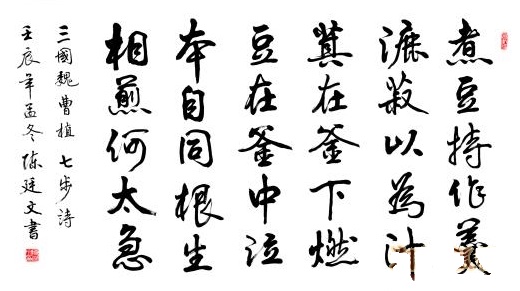 煮豆持作羹
漉菽以為汁
萁在釜下燃
豆在釜中泣
本自同根生
相煎何太急
三國魏曹植七步詩
壬辰年孟冬陈廷文書